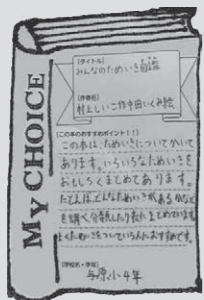 MY CHOICE
[タイトル]
みんなのためいき図鑑
[作者名]
村上しいこ作 中田いくみ絵
[この本のおすすめポイント!!]
この本は、ためいきについてかいて
あります。いろいろなためいきを
おもしろくまとめてあります。
たとえば、どんなためいきがあるかなど
を調べ分類したり表にまとめています。
よくためいきをついている人におすすめです。
[学校名・学年]
与原小4年